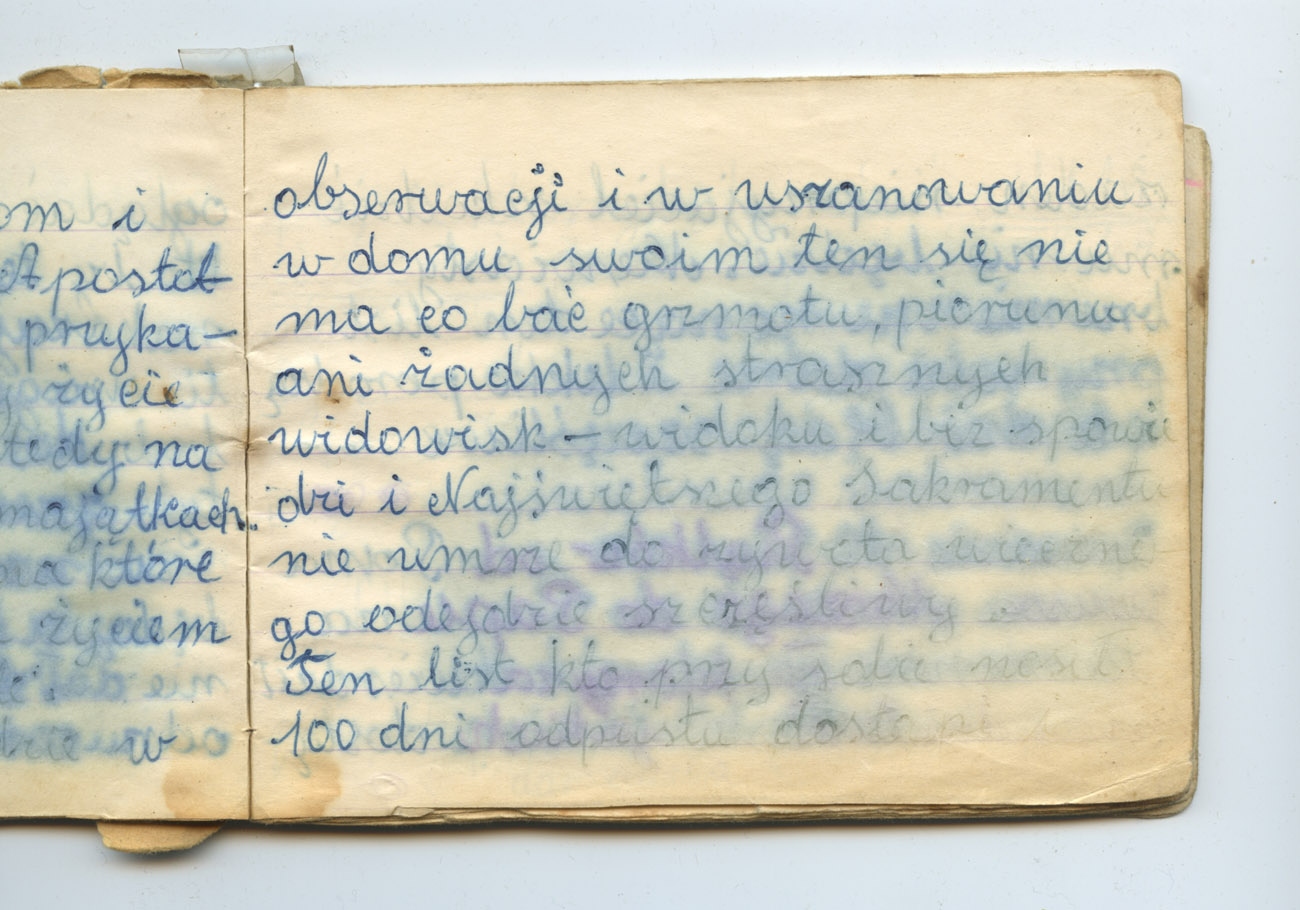 om i
Apostoł
przyka-
życie
tedy na
majątkach.
które
życiem
w
obserwacji i w uszanowaniu
w domu swoim ten się nie
ma co bać grzmotu, piorunu
ani żadnych strasznych
widowisk - widoku i bez spowie
dzi i Najświętszego Sakramentu
nie umrze do żywota wieczne-
go odejdzie szczęśliwy
Ten list kto przy sobie nosił
100 dni odpustu dostąpi